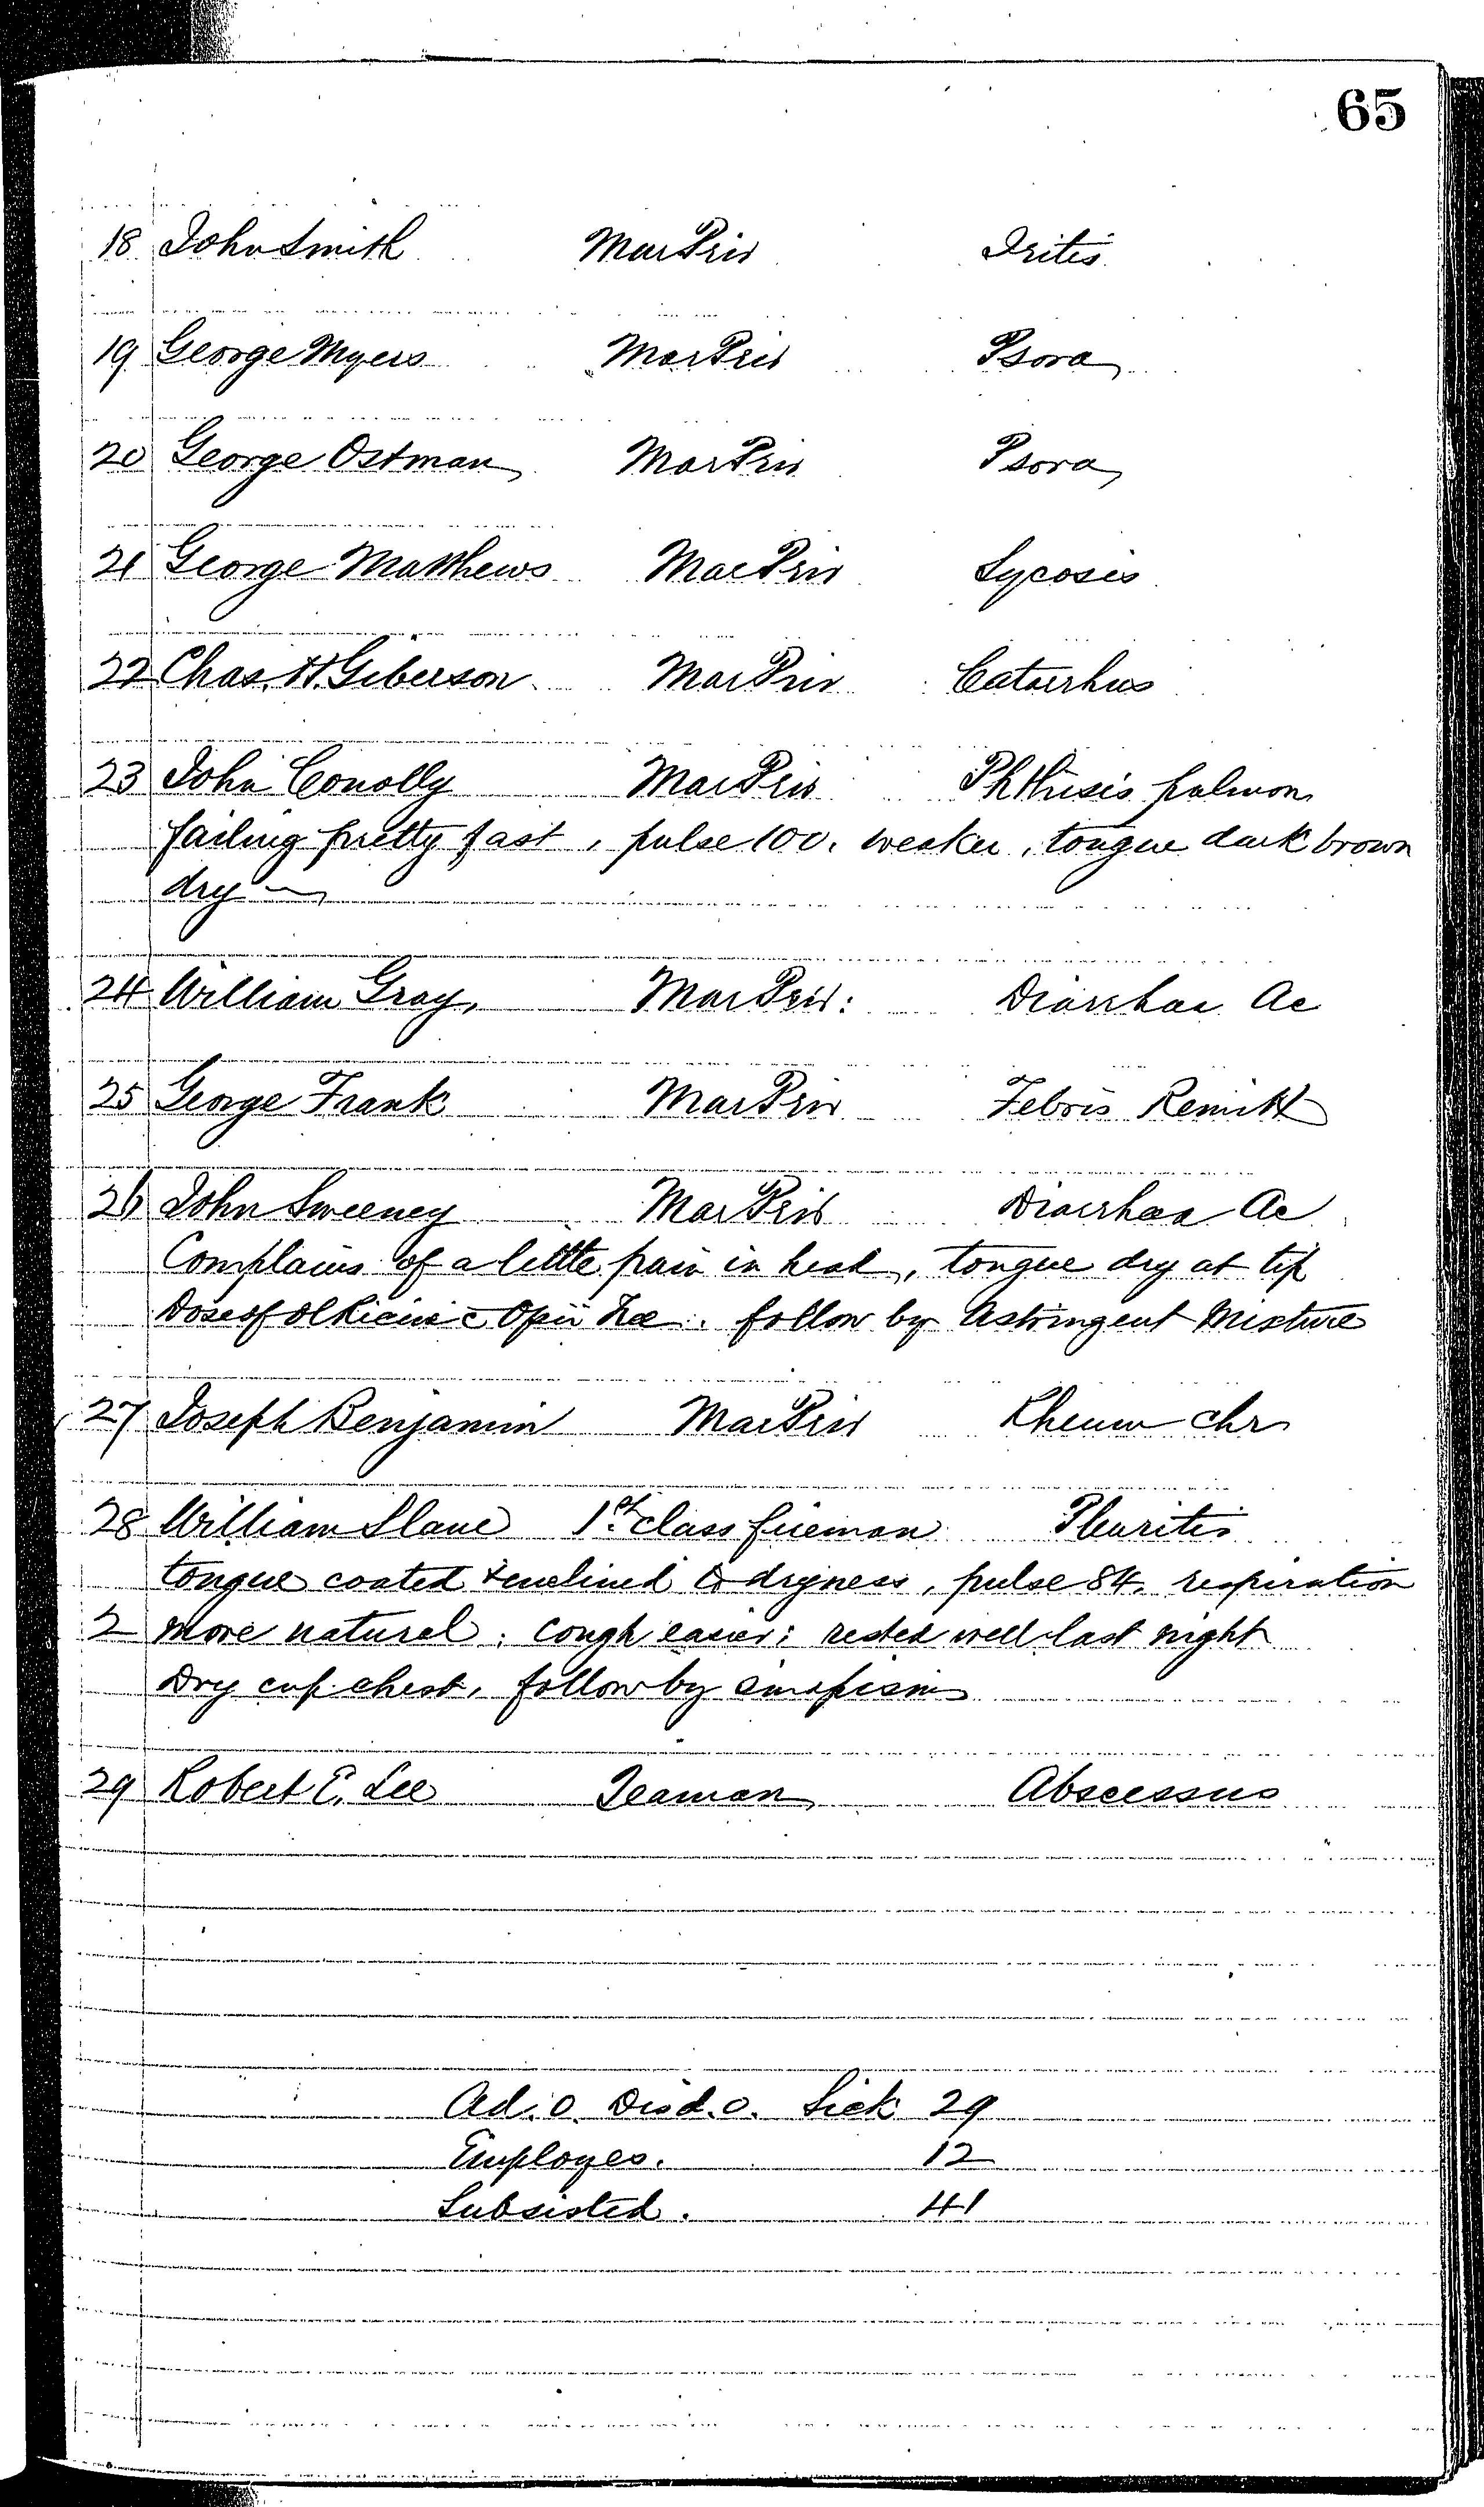 65
18 John Smith Mar Priv Iritis
19 George Myers Mar Priv Psora
20 George Ostman Mar Priv Psora
21 George Matthews Mar Priv Sycosis
22 Chas. H. Giberson Mar Priv Catarrhus
23 John Conolly Mar Priv Phthisis pulmon
failing pretty fast, pulse 100. weaker, tongue dark brown
dry
24 William Gray, Mar Priv: Diarrhœa Ac
25 George Frank Mar Priv Febris Remitt
26 John Sweeney Mar Priv Diarrhœa Ac
Complains of a little pain in head, tongue dry at tip
Dose of Ol Ricini c̄ Opii . follow by Astringent Mixture
27 Joseph Benjamin Mar Priv Rheum chr
28 William Slane 1st class fireman Pleuritis
tongue coated & inclined to dryness, pulse 84. respiration
2 more natural; cough easier; rested well last night
Dry cup chest, follow by sinapism
29 Robert E. Lee Seaman Abscessus
Ad. 0. Disd. 0. Sick 29
Employes. 12
Subsisted. 41